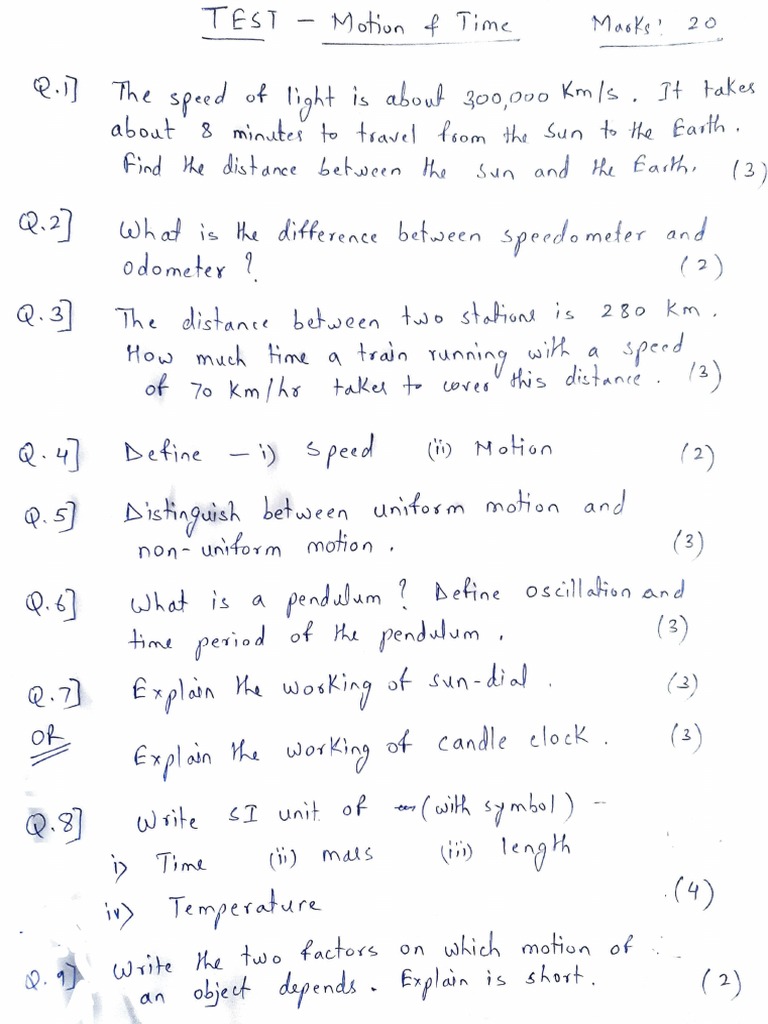 TEST - Motion & Time Marks: 20
Q.1] The speed of light is about 300,000 Km/s. It takes
about 8 minutes to travel from the Sun to the Earth.
Find the distance between the sun and the Earth. (3)
Q.2] What is the difference between speedometer and
odometer? (2)
Q.3] The distance between two stations is 280 Km.
How much time a train running with a speed
of 70 Km/hr takes to cover this distance. (3)
Q.4] Define - i) Speed (ii) Motion (2)
Q.5] Distinguish between uniform motion and
non-uniform motion. (3)
Q.6] What is a pendulum? Define oscillation and
time period of the pendulum. (3)
Q.7] Explain the working of sun-dial. (3)
OR
Explain the working of candle clock. (3)
Q.8] Write SI unit of (with symbol) -
i) Time (ii) mass (iii) length
iv) Temperature (4)
Q.9] Write the two factors on which motion of
an object depends. Explain is short. (2)